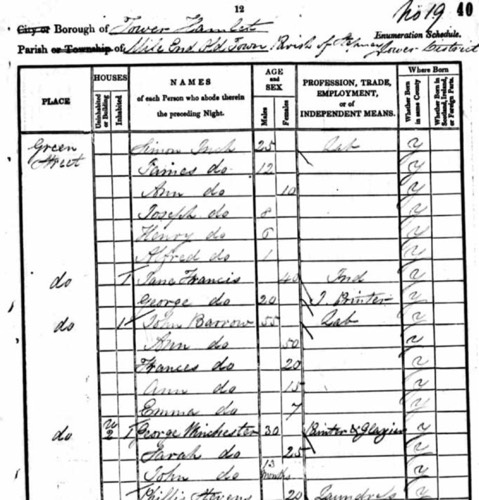 12
No 19 40
City or Borough of Tower Hamlets Enumeration Schedule.
Parish or Township of Mile End Old Town Parish of Lower District
PLACE
HOUSES
Uninhabited or Building
Inhabited
NAMES
of each Person who abode therein the preceding Night.
AGE and SEX
Males
Females
PROFESSION, TRADE, EMPLOYMENT, or of INDEPENDENT MEANS.
Where Born
Whether Born in same County
Whether Born in Scotland, Ireland, or Foreign Parts.
Green Street Simon 25 Lab y
James do 12 y
Ann do 10 y
Joseph do 8 y
Henry do 6 y
Alfred do 1 y
do 1 Jane Francis 40 Ind y
George do 20 Printer y
do 1 John Barrow 55 Lab y
Ann do 50 y
Frances do 20 y
Ann do 15 y
Emma do 7 y
do 1 George Winchester 30 Painter & Glazier y
Sarah do 25 y
John do 13 months y
Phillis Stevens 20 Laundress